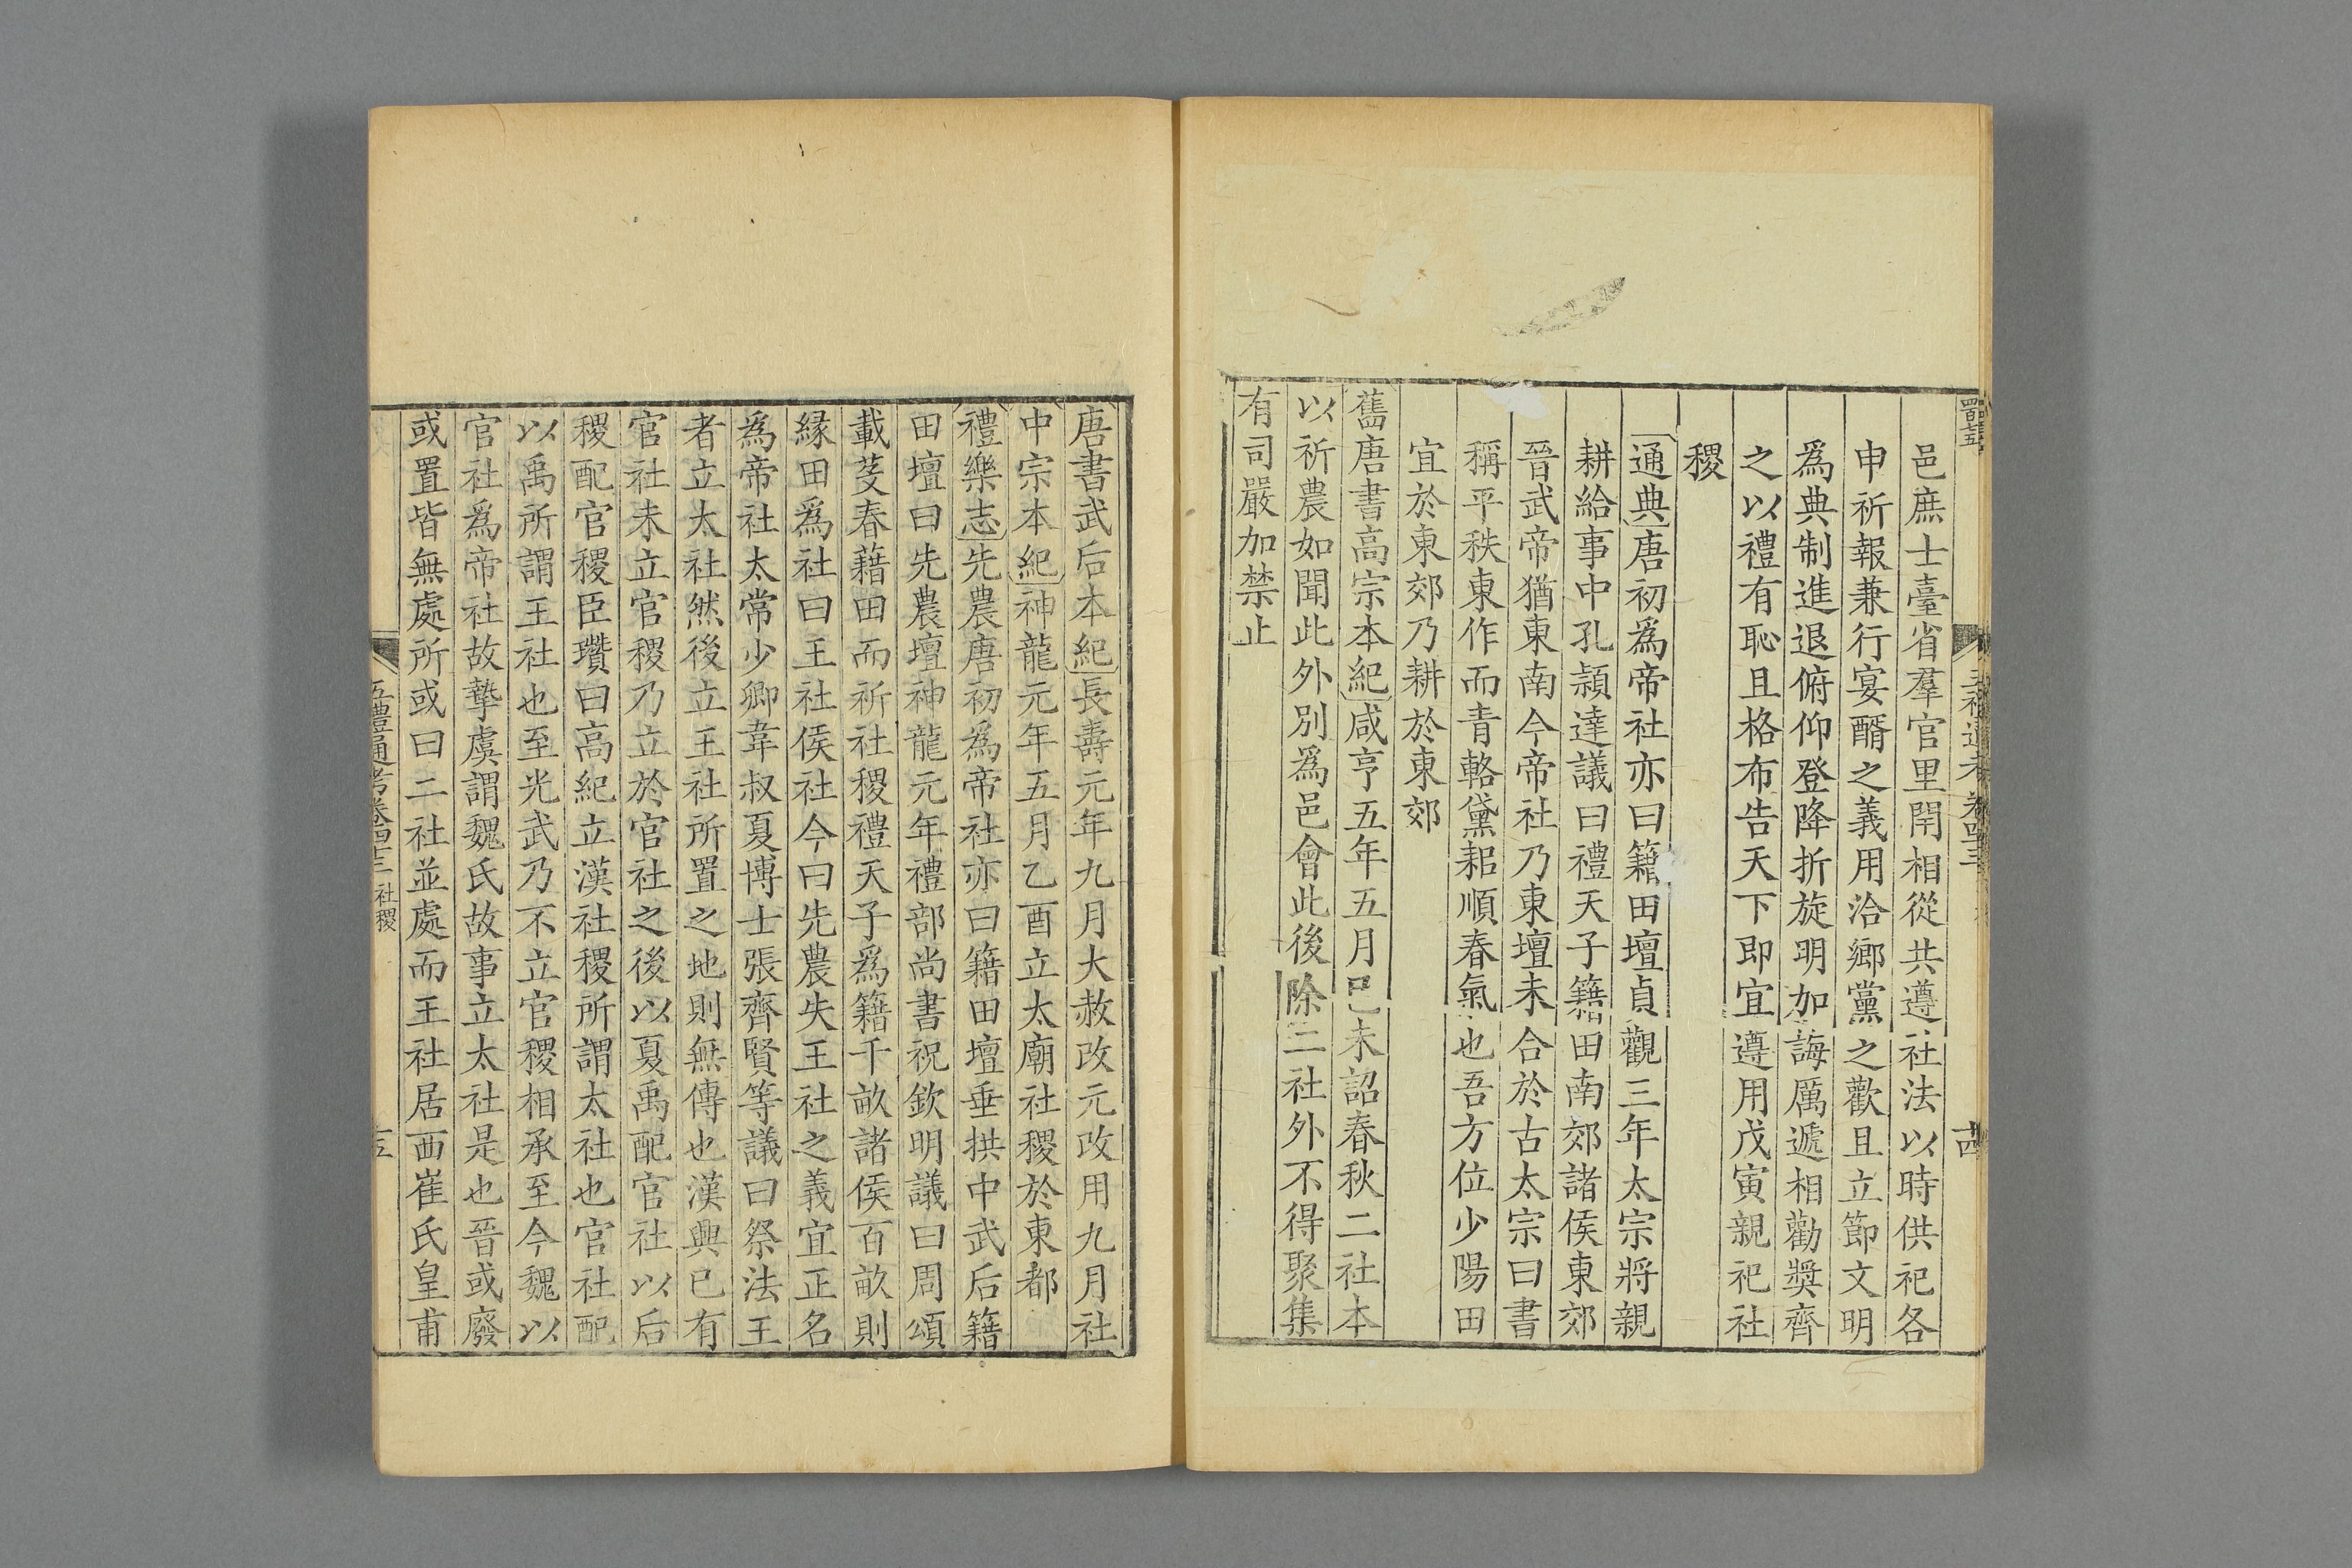 邑庶士臺省羣官里閈相從共遵社法以時供祀各
申祈報兼行宴醑之義用洽鄉黨之歡且立節文明
爲典制進退俯仰登降折旋明加誨厲遞相勸奬齊
之以禮有恥且格布告天下即宜遵用戊寅親祀社
稷
通典唐初爲帝社亦曰籍田壇貞觀三年太宗將親
耕給事中孔穎達議曰禮天子籍田南郊諸侯東郊
晉武帝猶東南今帝社乃東壇未合於古太宗曰書
稱平秩東作而青輅黛耜順春氣也吾方位少陽田
宜於東郊乃耕於東郊
舊唐書高宗本紀咸亨五年五月己未詔春秋二社本
以祈農如聞此外別爲邑會此後除二社外不得聚集
有司嚴加禁止
十四
唐書武后本紀長壽元年九月大赦改元改用九月社
中宗本紀神龍元年五月乙酉立太廟社稷於東都
禮樂志先農唐初爲帝社亦曰籍田壇垂拱中武后籍
田壇曰先農壇神龍元年禮部尚書祝欽明議曰周頌
載芟春藉田而祈社稷禮天子爲籍千畝諸侯百畝則
緣田爲社曰王社侯社今曰先農失王社之義宜正名
爲帝社太常少卿韋叔夏博士張齊賢等議曰祭法王
者立太社然後立王社所置之地則無傳也漢興已有
官社未立官稷乃立於官社之後以夏禹配官社以后
稷配官稷臣瓚曰高紀立漢社稷所謂太社也官社配
以禹所謂王社也至光武乃不立官稷相承至今魏以
官社爲帝社故摯虞謂魏氏故事立太社是也晉或廢
或置皆無處所或曰二社並處而王社居西崔氏皇甫
五禮通考卷四十三 社稷
十五